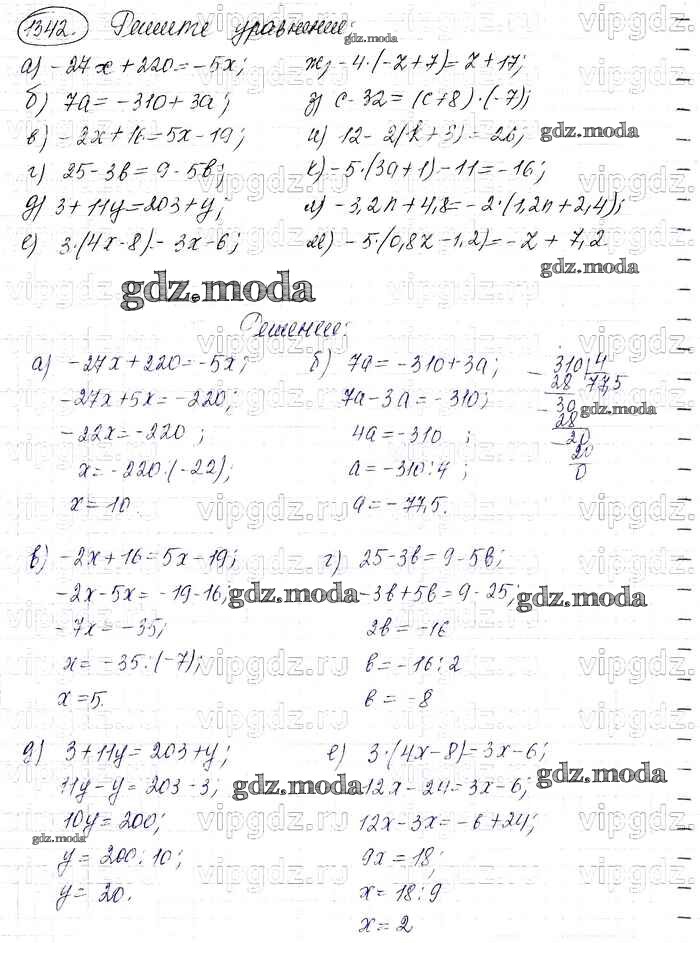 1342. Решите уравнение:
а) -27x+220=-5x; ж) -4·(-z+7)=z+17;
б) 7a=-310+3a; з) c-32=(c+8)·(-7);
в) -2x+16=5x-19; и) 12-2(k+3)=26;
г) 25-3b=9-5b; к) -5·(3a+1)-11=-16;
д) 3+11y=203+y; л) -3,2n+4,8=-2·(1,2n+2,4);
е) 3·(4x-8)=3x-6; м) -5·(0,8z-1,2)=-z+7,2
gdz.moda
Решение:
а) -27x+220=-5x;
-27x+5x=-220;
-22x=-220;
x=-220:(-22);
x=10.
б) 7a=-310+3a;
7a-3a=-310;
4a=-310;
a=-310:4;
a=-77,5.
310 4
28 77,5
30
28
20
20
0
в) -2x+16=5x-19;
-2x-5x=-19-16;
-7x=-35;
x=-35:(-7);
x=5.
г) 25-3b=9-5b;
-3b+5b=9-25;
2b=-16
b=-16:2
b=-8
д) 3+11y=203+y;
11y-y=203-3;
10y=200;
y=200:10;
y=20.
е) 3·(4x-8)=3x-6;
12x-24=3x-6;
12x-3x=-6+24;
9x=18;
x=18:9
x=2
gdz.moda
vipgdz.ru